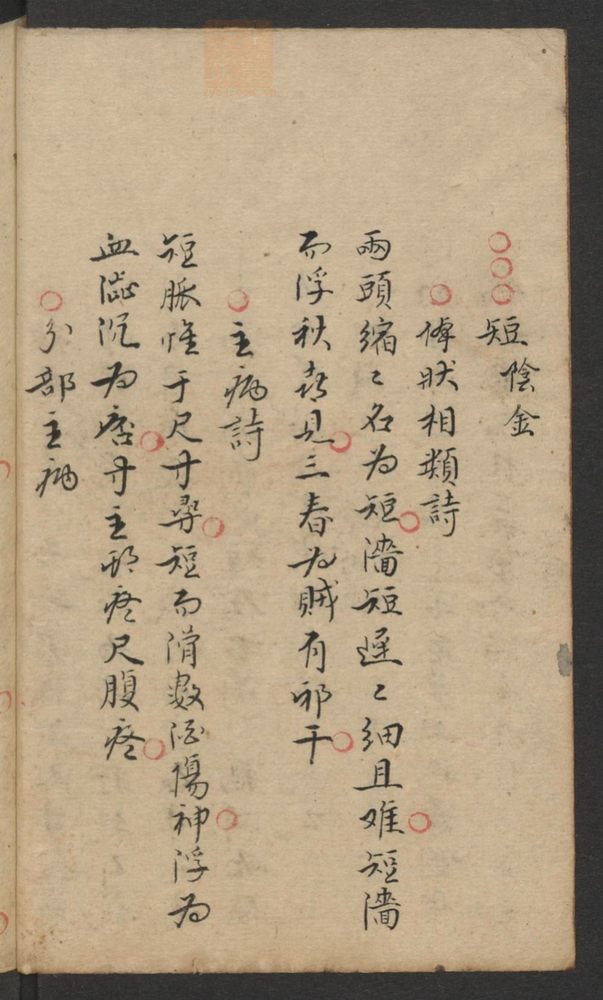 ○○○短陰金
○体狀相類詩
兩頭縮々名为短○濇短遲々细且难○短濇
而浮秋喜見○三春为賊有邪干○
○主病詩
短脈惟于尺寸尋○短而滑數酒傷神○浮为
血澁沉为痞○寸主頭疼尺腹疼○
○分部主病